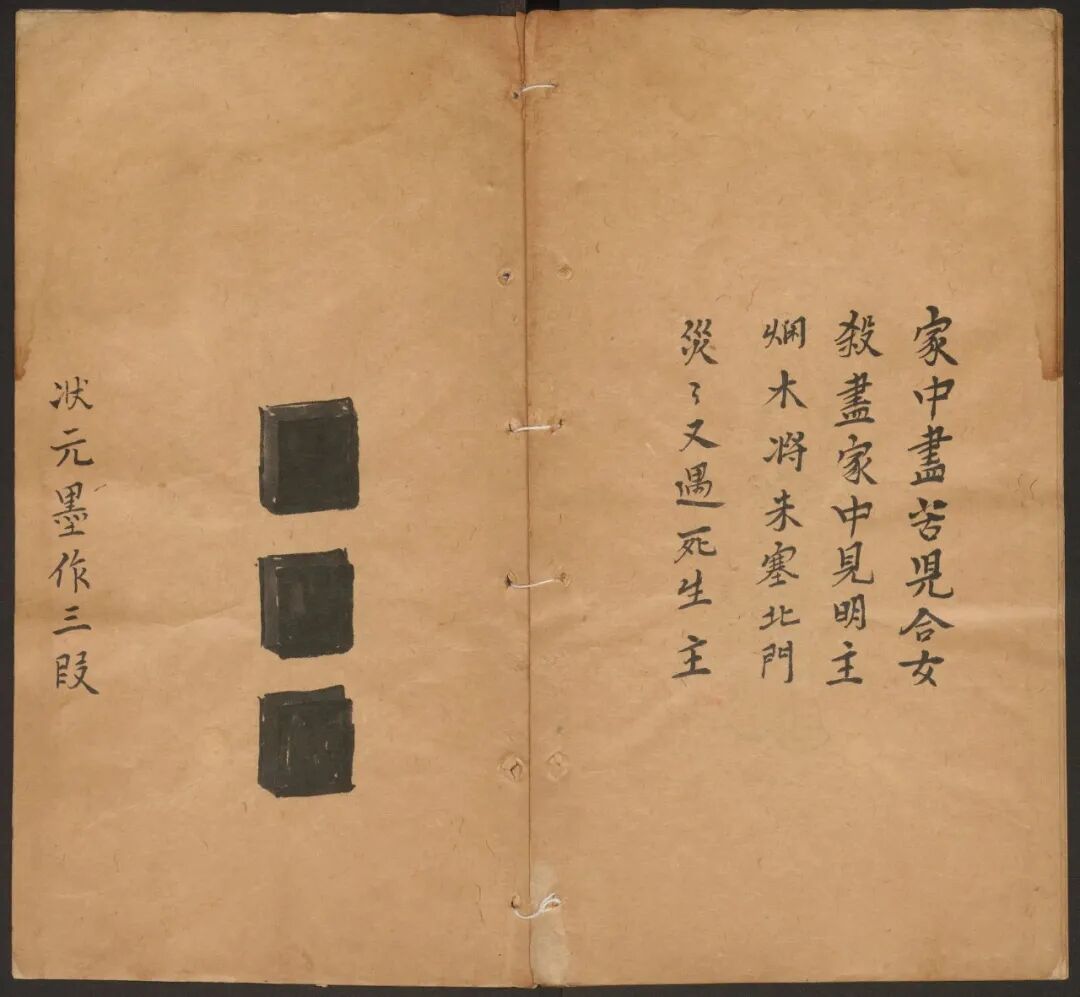 家中盡苦児合女
殺盡家中見明主
爛木将未塞北門
災〻又遇死生主
状元墨作三段